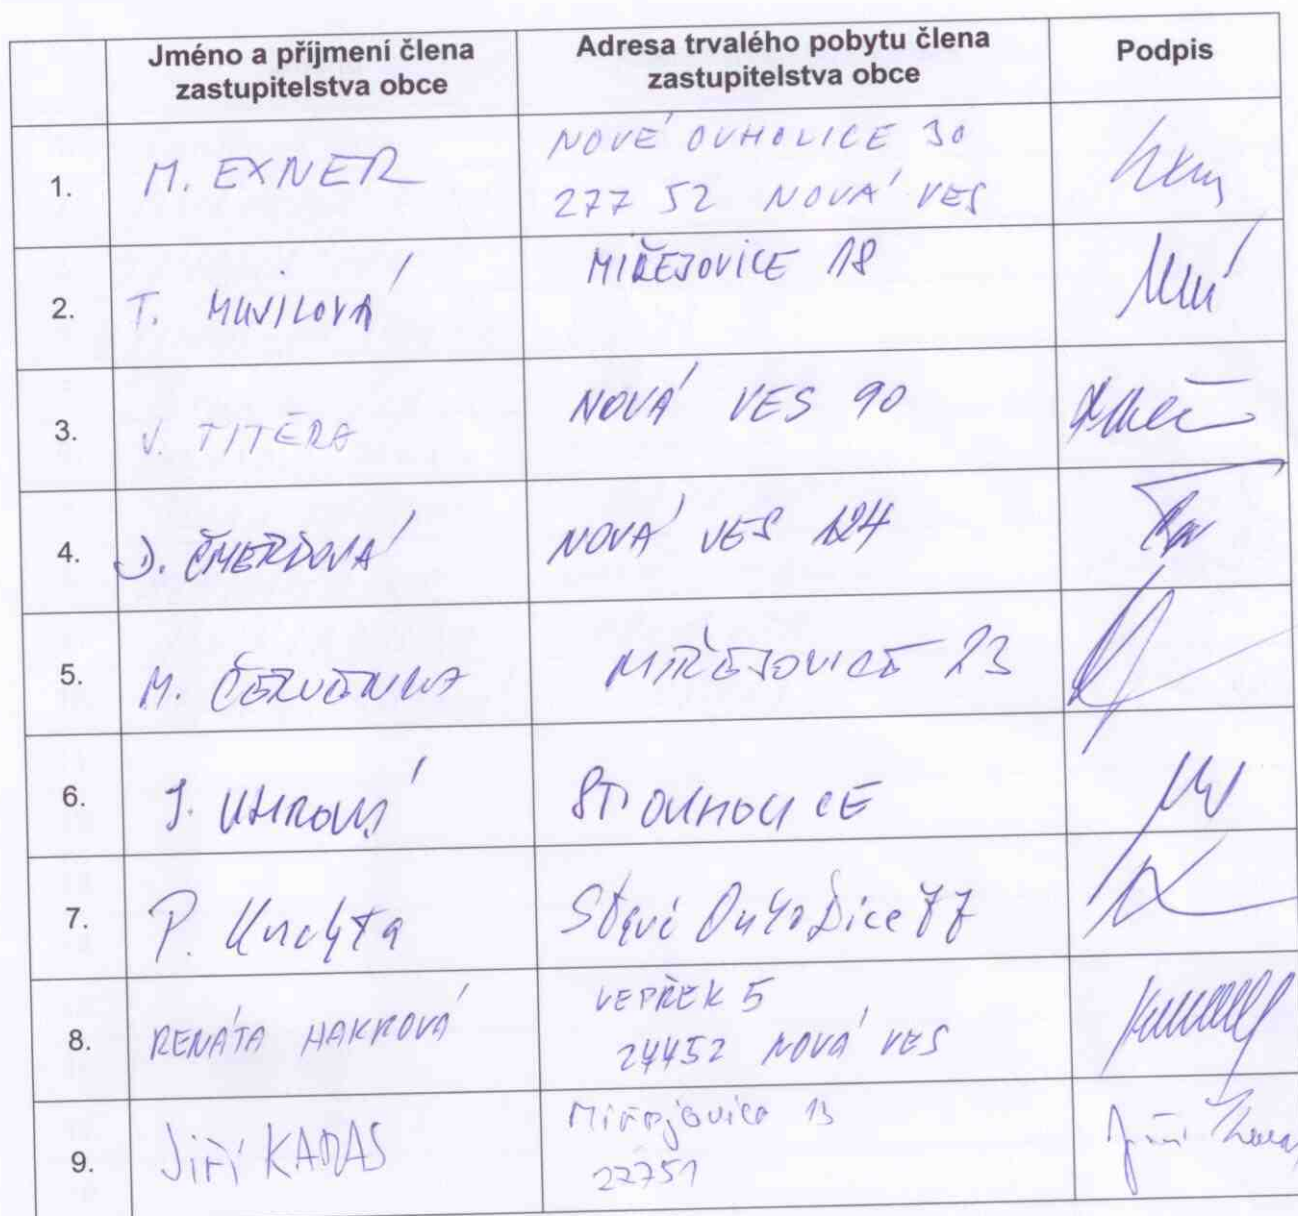 Jméno a příjmení člena
zastupitelstva obce
Adresa trvalého pobytu člena
zastupitelstva obce
Podpis
1.
M. EXNER
NOVÉ OUHOLICE 30
277 52 NOVÁ VES
2.
T. MUSILOVÁ
MIŘEJOVICE 18
3.
V. TITĚRA
NOVÁ VES 90
4.
NOVÁ VES 124
5.
M. ČERVENKA
MIŘEJOVICE 23
6.
J. UHROVÁ
ST. OUHOLICE
7.
P. Kuchta
Staré Ouholice 77
8.
RENÁTA HAKROVÁ
VEPŘEK 5
27752 NOVÁ VES
9.
JIŘÍ
Miřejovice 13
27751